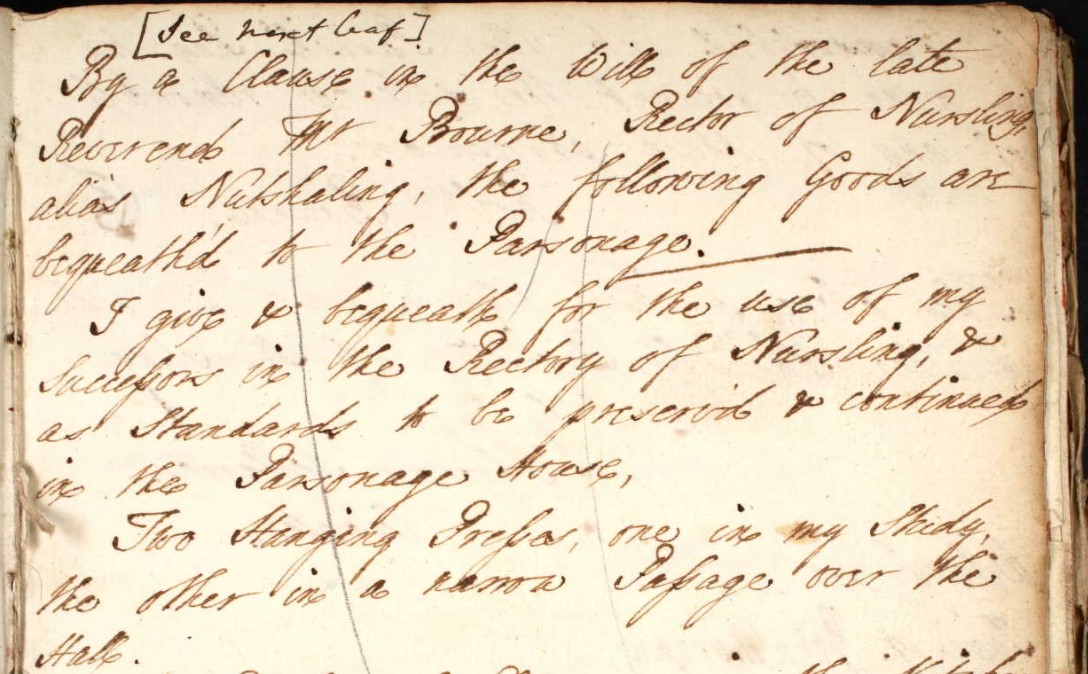 [See next leaf]
By a Clause in the Will of the late
Reverend Mr Bourne, Rector of Nursling,
alias Nutshaling, the following Goods are
bequeath'd to the Parsonage.
I give & bequeath for the use of my
Successors in the Rectory of Nursling, &
as Standards to be preserv'd & continued
in the Parsonage House,
Two Hanging Presses, one in my Study,
the other in a narrow Passage over the
Hall.
in the